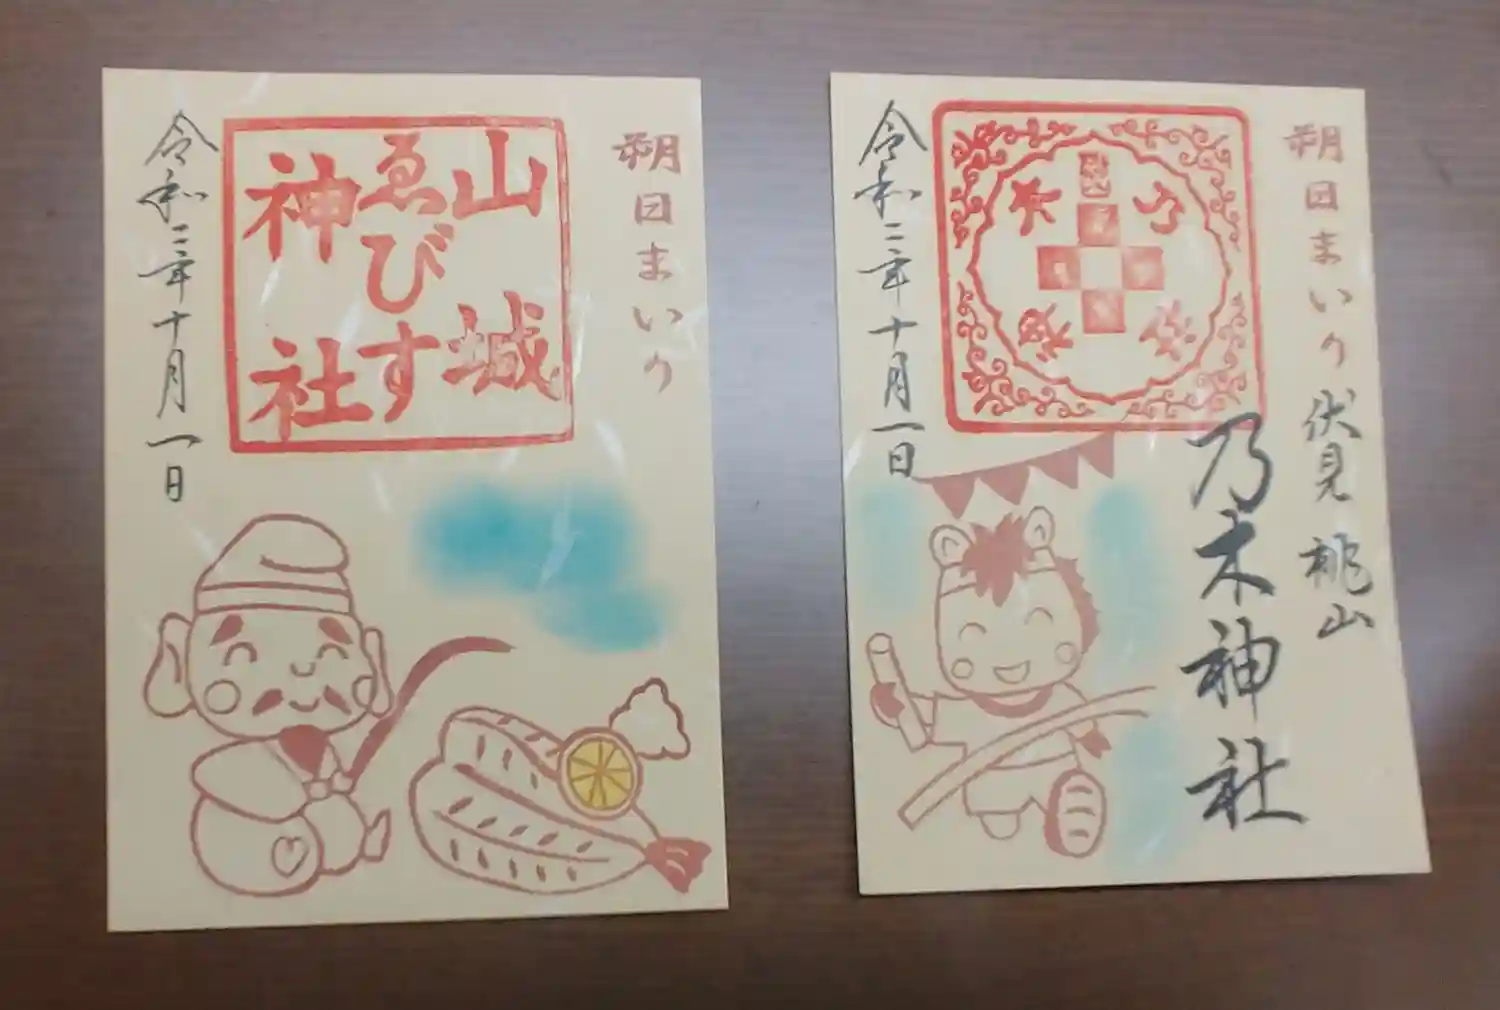 朔日まいり
山城
ゑびす
神社
令和三年十月一日
朔日まいり
伏見 桃山
乃木神社
令和三年十月一日